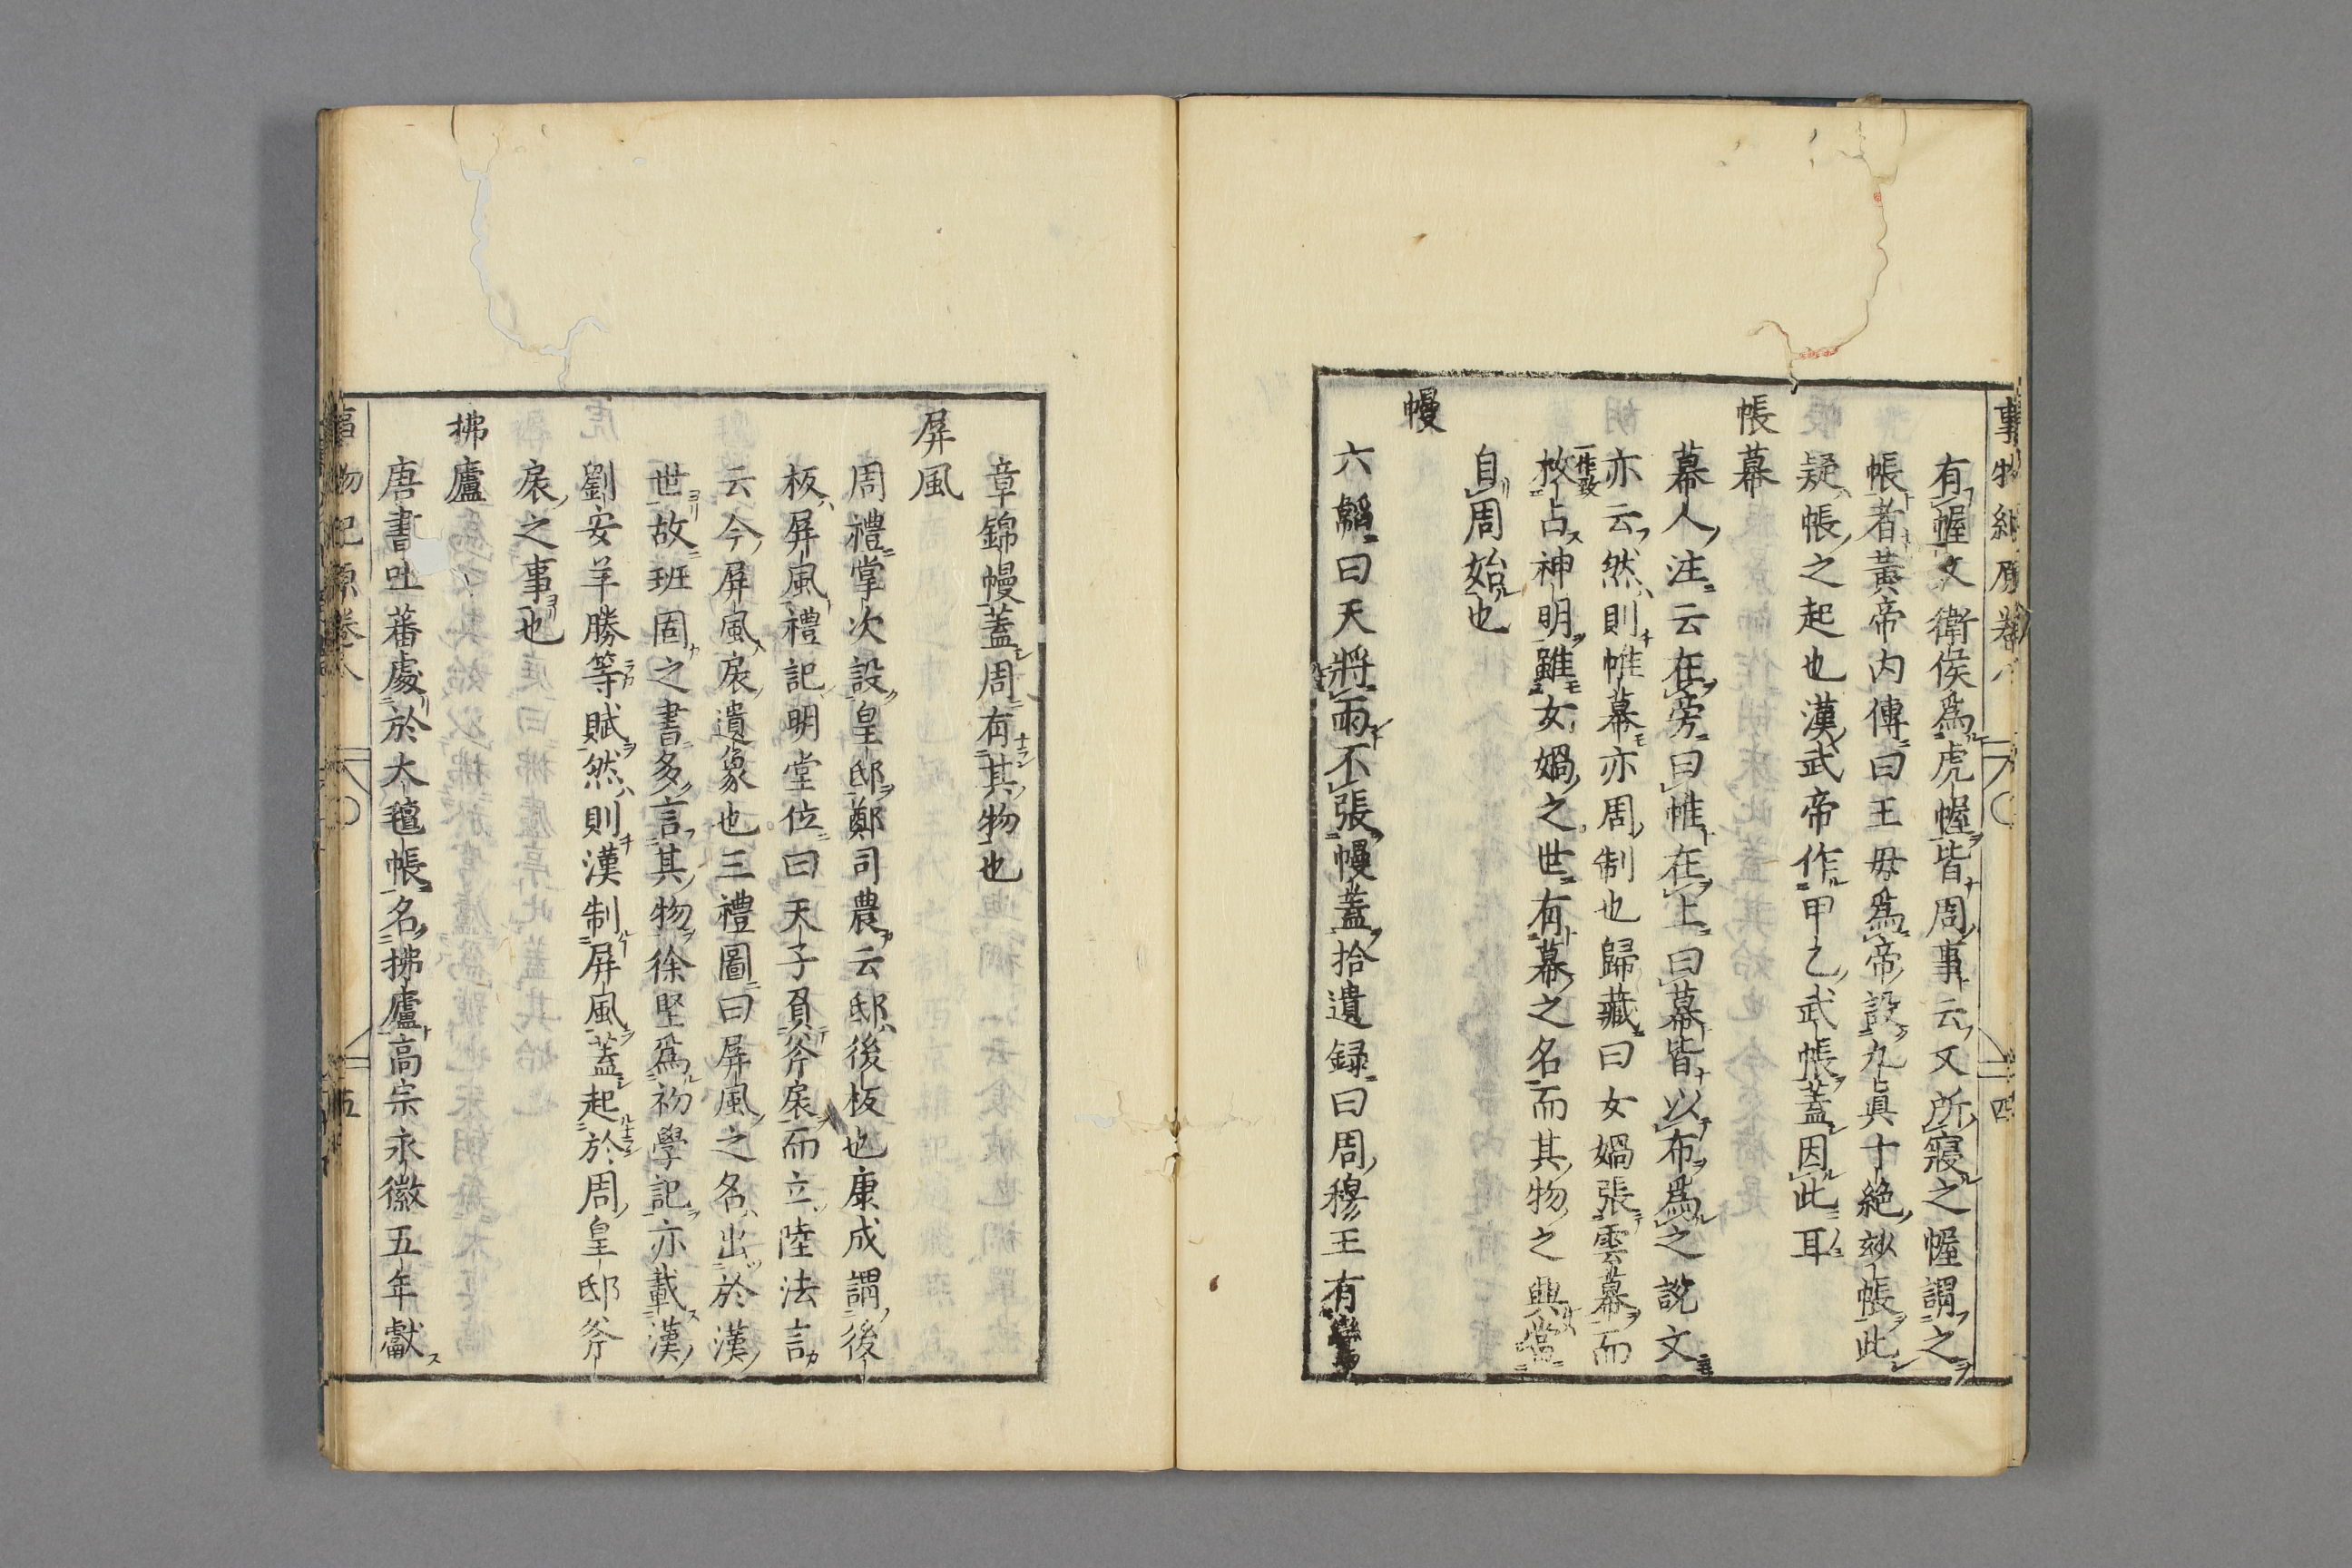 事物紀原卷八
四
有幄文衛侯爲虎幄皆周事云又所寢之幄謂之
帳者黃帝内傳曰王母爲帝設九眞十絶玅帳此
疑帳之起也漢武帝作甲乙武帳蓋因此耳
帳幕
幕人注云在旁曰帷在上曰幕皆以布爲之說文
亦云然則帷幕亦周制也歸藏曰女媧張雲幕而
枚一作致占神明雖女媧之世有幕之名而其物之興當
自周始也
幔
六韜曰天將雨不張幔蓋拾遺録曰周穆王有鸞
章錦幔蓋周有其物也
屏風
周禮掌次設皇邸鄭司農云邸後板也康成謂後
板屏風禮記明堂位曰天子負斧扆而立陸法言
云今屏風扆遺象也三禮圖曰屏風之名出於漢
世故班固之書多言其物徐堅爲初學記亦載漢
劉安羊勝等賦然則漢制屏風蓋起於周皇邸斧
扆之事也
拂廬
唐書吐蕃處於大氊帳名拂廬高宗永徽五年獻
物紀原卷八
五